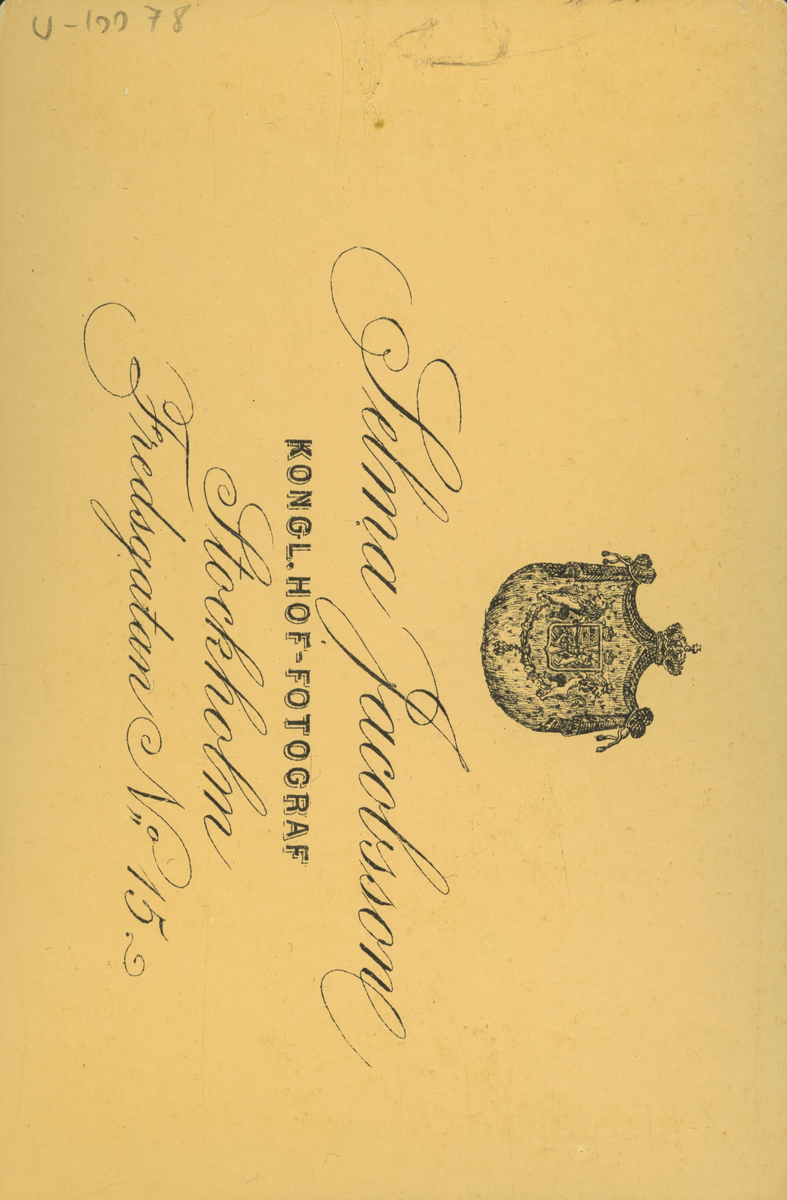 U-10078
Selma Jacobsson
KONGL. HOF-FOTOGRAF
Stockholm
Fredsgatan No 15.